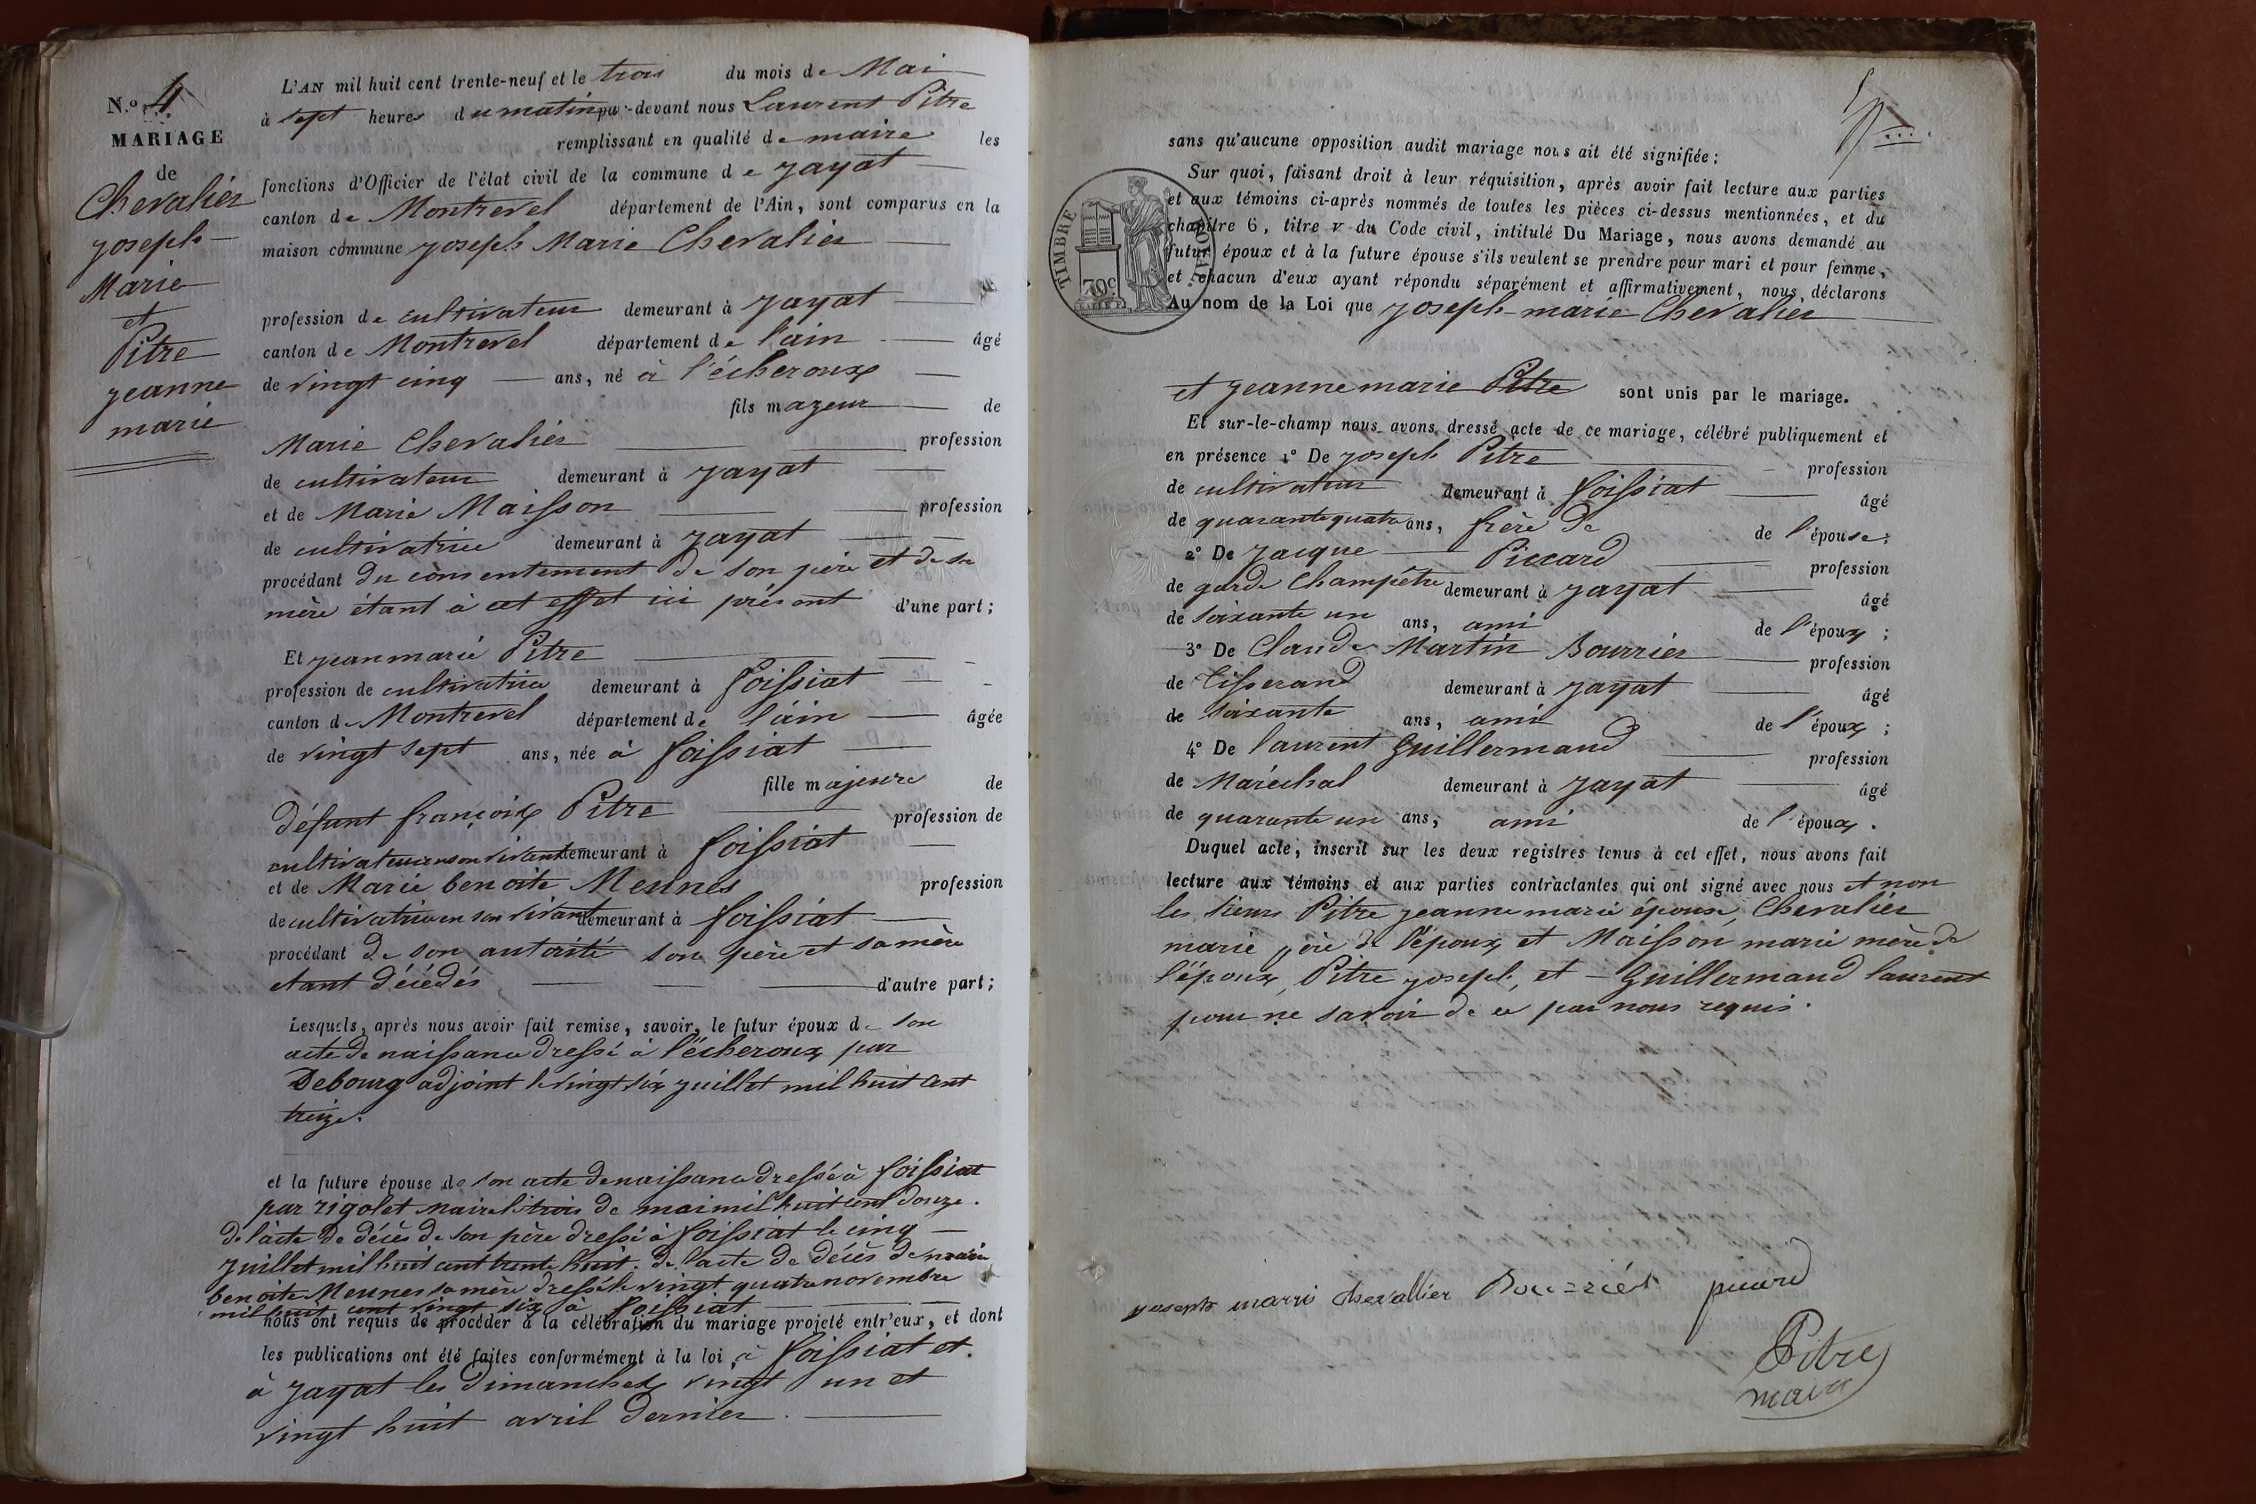 N.o 4
MARIAGE
de
Chevalier
joseph
Marie
et
Pitre
jeanne
marie
L'AN mil huit cent trente-neuf et le trois du mois de Mai
à sept heures du matin par-devant nous Laurent Pitre
remplissant en qualité de maire les
fonctions d'Officier de l'état civil de la commune de jayat
canton de Montrevel département de l'Ain, sont comparus en la
maison commune joseph Marie Chevalier
profession de cultivateur demeurant à jayat
canton de Montrevel département de l'ain âgé
de vingt cinq ans, né à l'écheroux
fils mageur de
Marie Chevalier profession
de cultivateur demeurant à jayat
et de Marie Maisson profession
de cultivatrice demeurant à jayat
procédant du consentement de son père et de sa
mère étant à cet effet ici présent d'une part;
Et jeanmarie Pitre
profession de cultivatrice demeurant à foissiat
canton de Montrevel département de l'ain âgée
de vingt sept ans, née à foissiat
fille majeure de
défunt françoix Pitre profession de
cultivateur en son vivant demeurant à foissiat
et de Marie benoite Meunes profession
de cultivatrice en son vivant demeurant à foissiat
procédant de son autorité son père et sa mère
etant décédés d'autre part;
Lesquels, après nous avoir fait remise, savoir, le futur époux de son
acte de naissance dressé à l'écheroux par
Debourg adjoint le vingt six juillet mil huit cent
treize.
et la future épouse de son acte de naissance dressé à foissiat
par rigolet maire le trois de mai mil huit cent douze.
de l'acte de décès de son père dressé à foissiat le cinq
juillet mil huit cent trente huit. de l'acte de décès de marie
benoite Meunes sa mère dressé le vingt quatre novembre
mil huit cent vingt six à foissiat
nous ont requis de procéder à la célébration du mariage projeté entr'eux, et dont
les publications ont été faites conformément à la loi, à foissiat et
à jayat les dimanches vingt un et
vingt huit avril dernier.
sans qu'aucune opposition audit mariage nous ait été signifiée;
Sur quoi, faisant droit à leur réquisition, après avoir fait lecture aux parties
et aux témoins ci-après nommés de toutes les pièces ci-dessus mentionnées, et du
chapitre 6, titre V du Code civil, intitulé Du Mariage, nous avons demandé au
futur époux et à la future épouse s'ils veulent se prendre pour mari et pour femme,
et chacun d'eux ayant répondu séparément et affirmativement, nous déclarons
Au nom de la Loi que joseph-marie Chevalier
TIMBRE ROYAL
70c
et jeanne marie Pitre sont unis par le mariage.
Et sur-le-champ nous avons dressé acte de ce mariage, célébré publiquement et
en présence 1° De joseph Pitre profession
de cultivateur demeurant à foissiat âgé
de quarante quatre ans, frère de de l'épouse;
2° De jacque Piccard profession
de garde Champêtre demeurant à jayat âgé
de soixante un ans, ami de l'époux;
3° De Claude Martin Bourrier profession
de tisserand demeurant à jayat âgé
de soixante ans, ami de l'époux;
4° De laurent Guillermand profession
de Maréchal demeurant à jayat âgé
de quarante un ans, ami de l'époux.
Duquel acte, inscrit sur les deux registres tenus à cet effet, nous avons fait
lecture aux témoins et aux parties contractantes qui ont signé avec nous et non
les sieurs Pitre jeanne marie épouse, Chevalier
marie père de l'époux et Maisson marie mère de
l'époux, Pitre joseph, et Guillermand laurent
pour ne savoir de ce par nous requis.
joseph marri chevallier Bourriér picard
Pitre
maire